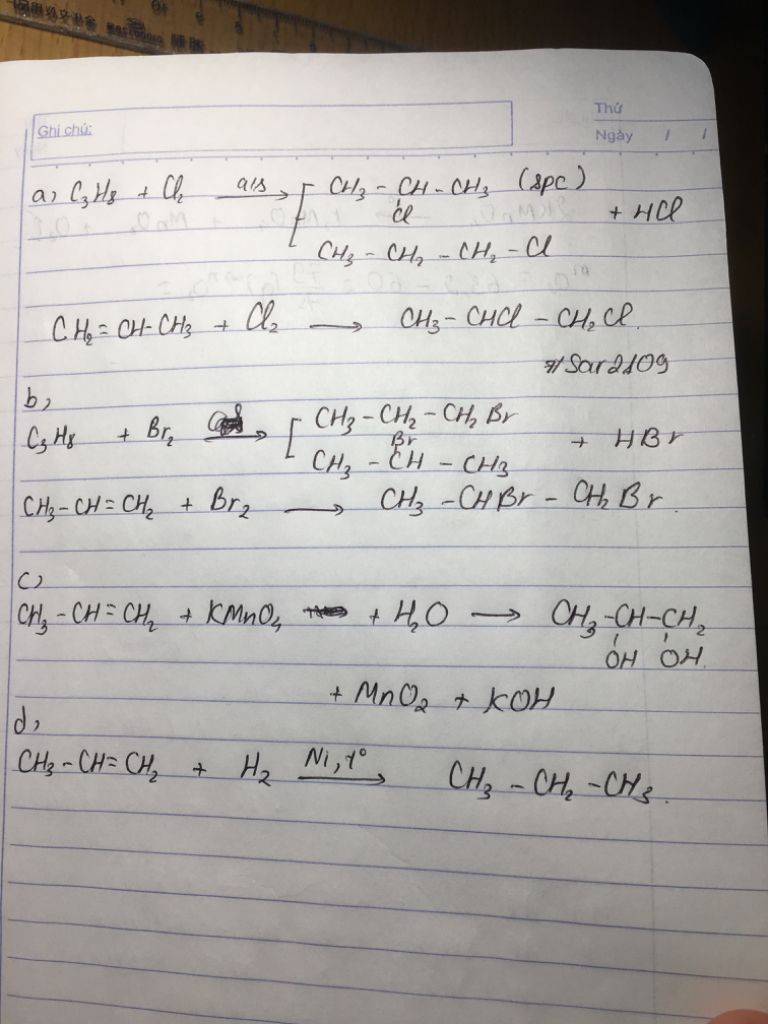 Ghi chú:
Thứ
Ngày / /
a, C₃H₈ + Cl₂ —as→ [ CH₃ - CH - CH₃ (spc)
Cl
+ HCl
CH₃ - CH₂ - CH₂ - Cl
CH₂ = CH - CH₃ + Cl₂ → CH₃ - CHCl - CH₂Cl.
#Sar2109
b,
C₃H₈ + Br₂ → [ CH₃ - CH₂ - CH₂Br
Br
+ HBr
CH₃ - CH - CH₃
CH₃ - CH = CH₂ + Br₂ → CH₃ - CHBr - CH₂Br.
c,
CH₃ - CH = CH₂ + KMnO₄ + H₂O → CH₃ - CH - CH₂
OH OH.
+ MnO₂ + KOH
d,
CH₃ - CH = CH₂ + H₂ —Ni, t°→ CH₃ - CH₂ - CH₃.